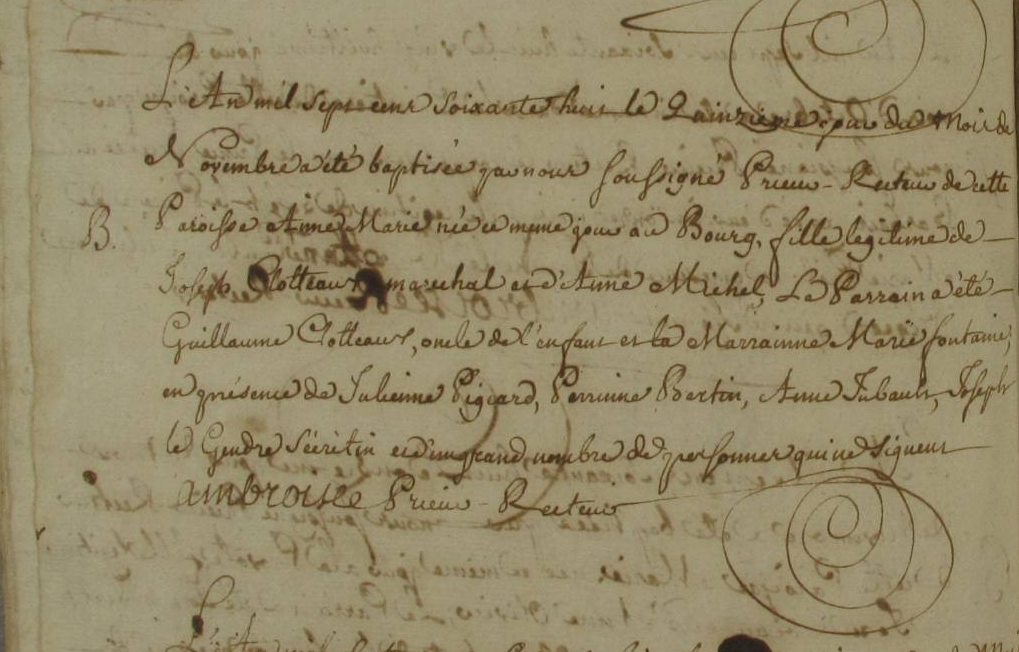 L'An mil sept cent soixante huit le Quinzième jour du Mois de
Novembre a été baptisée par nous soussigné Prieur - Recteur de cette
B. Paroisse Anne Marie née ce meme jour au Bourg, fille legitime de
Joseph Clotteaux marechal et d'Anne Michel, Le Parrain a été
Guillaume Clotteaux, oncle de l'enfant et la Marrainne Marie fontaine,
en présence de Julienne Pigeard, Perrinne Bertin, Anne Jubault, Joseph
le Gendre Sécrétin et d'un grand nombre de personnes qui ne signent
AMBROISE Prieur - Recteur
L'An mil